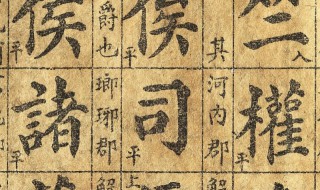 竺入權平
其河內郡
侯平司平
爵也瑯琊郡解
侯平諸平